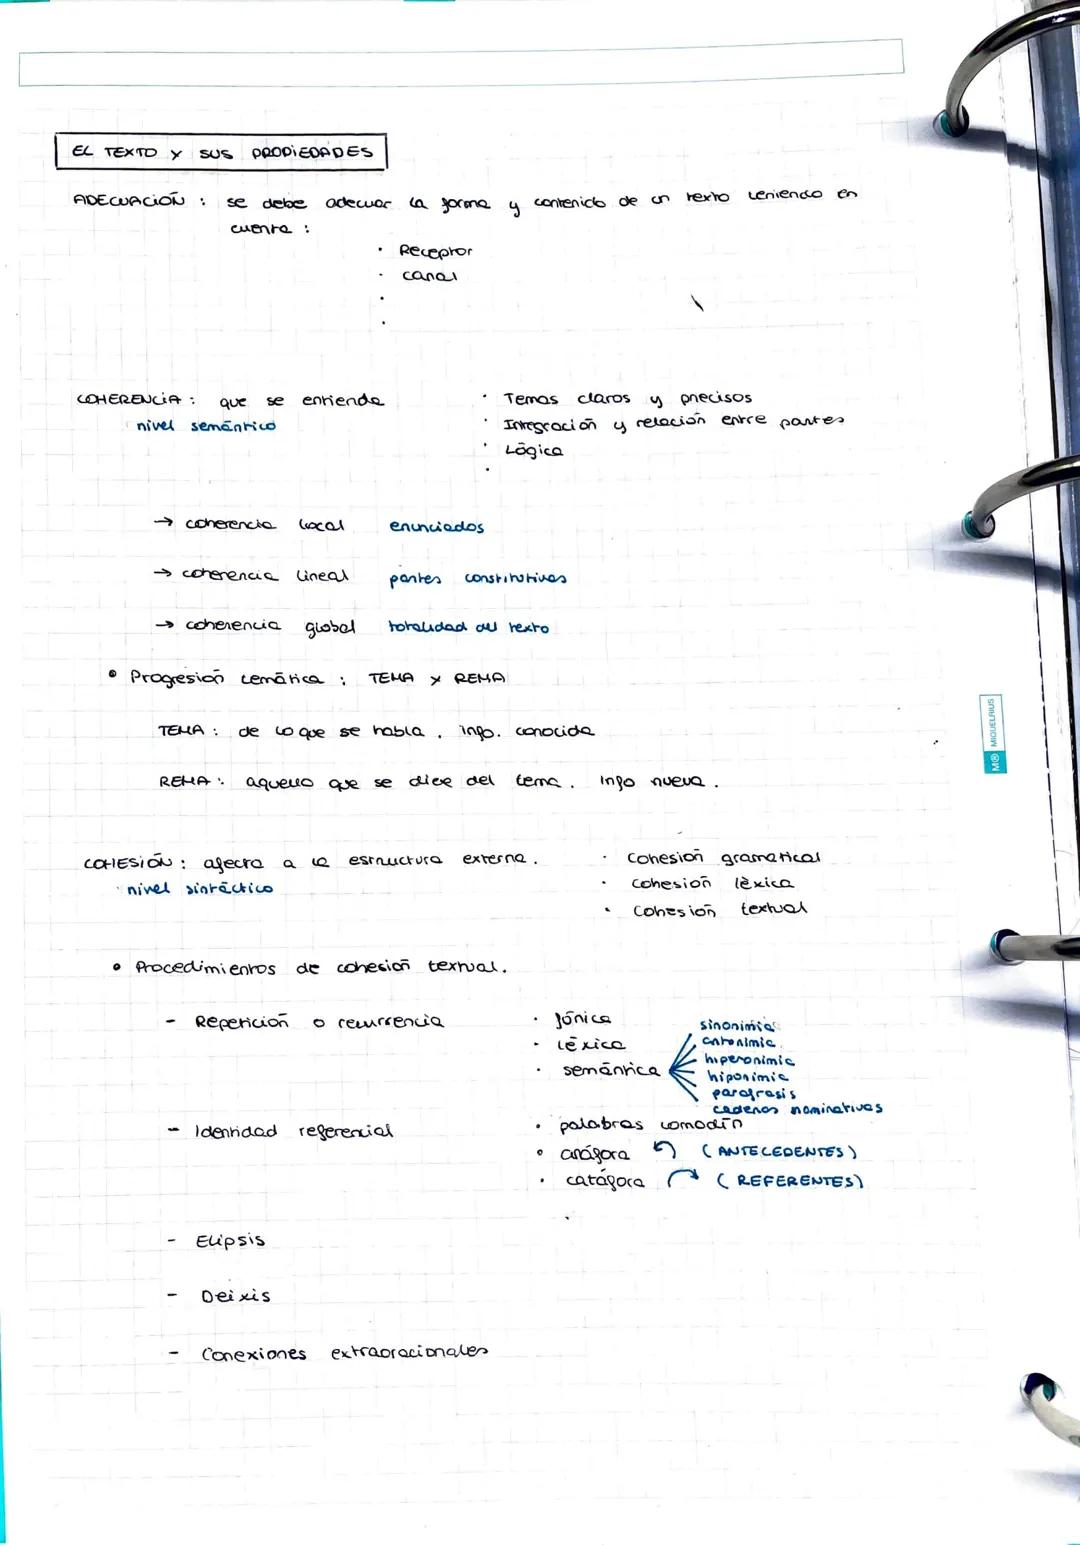 EL TEXTO Y SUS PROPIEDADES
ADECUACIÓN : se debe adecuar la forma y contenido de un texto teniendo en
cuenta :
· Receptor
· canal
·
·
COHERENCIA : que se entienda
nivel semántico
· Temas claros y precisos
· Integración y relación entre partes
· Lógica
·
→ coherencia local enunciados
→ coherencia lineal partes constitutivas
→ coherencia global totalidad del texto
• Progresión temática : TEMA Y REMA
TEMA : de lo que se habla . info. conocida
REMA : aquello que se dice del tema . Info nueva .
COHESIÓN : afecta a la estructura externa .
nivel sintáctico
· Cohesión gramatical
· Cohesión léxica
· Cohesión textual
• Procedimientos de cohesión textual.
- Repetición o recurrencia
· fónica
· léxica
· semántica
sinonimia
antonimia
hiperonimia
hiponimia
parafrasis
cadenas nominativas
- Identidad referencial
· palabras comodín
• anáfora (ANTECEDENTES)
· catáfora (REFERENTES)
·
- Elipsis
- Deixis
- Conexiones extraoracionales
M® MIQUELRIUS